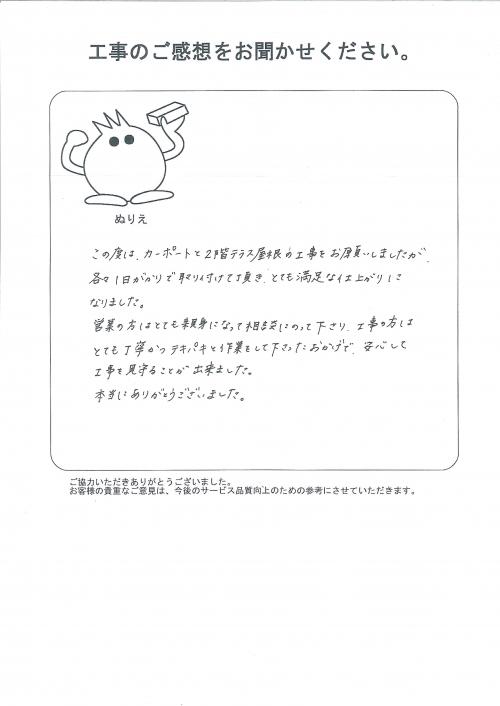 工事のご感想をお聞かせください。
ぬりえ
この度は、カーポートと2階テラス屋根の工事をお願いしましたが、
各々1日がかりで取り付けて頂き、とても満足な仕上がりに
なりました。
営業の方はとても親身になって相談にのって下さり、工事の方は
とても丁寧かつテキパキと作業をして下さったおかげで、安心して
工事を見守ることが出来ました。
本当にありがとうございました。
ご協力いただきありがとうございました。
お客様の貴重なご意見は、今後のサービス品質向上のための参考にさせていただきます。